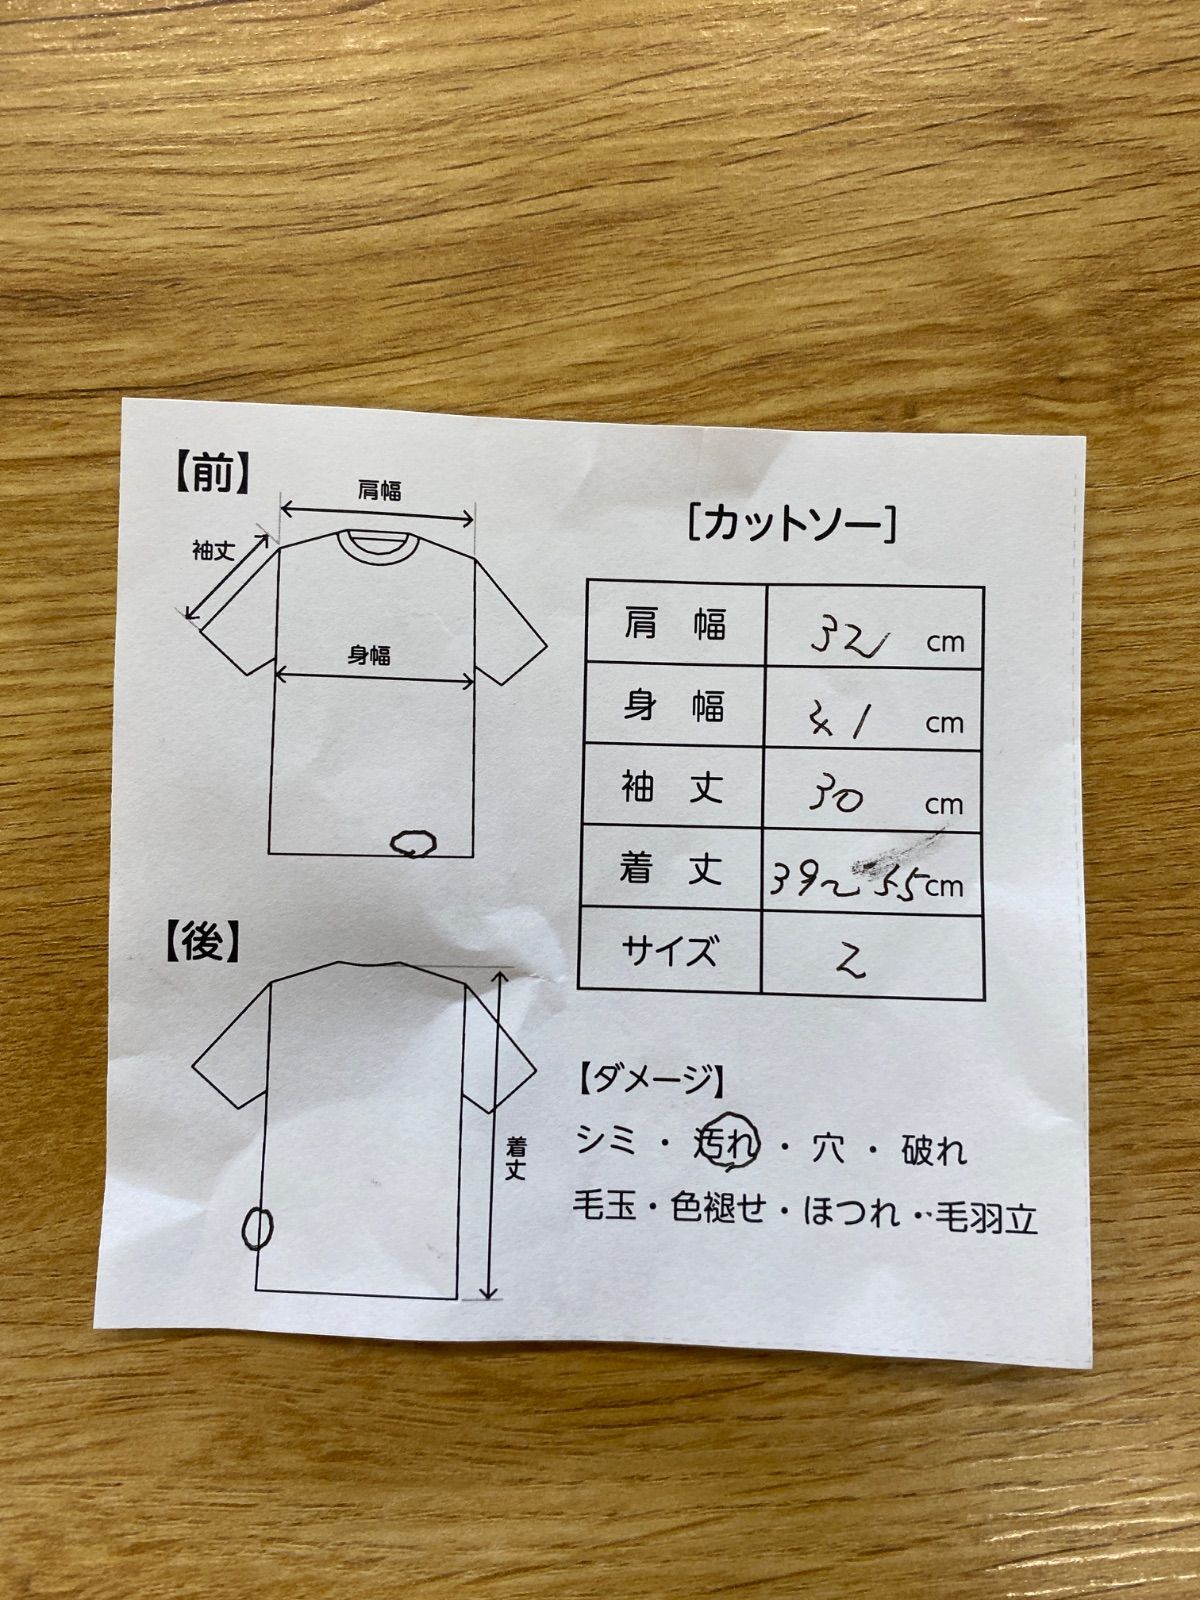 【前】
肩幅
袖丈
身幅
[カットソー]
肩幅 32 cm
身幅 41 cm
袖丈 30 cm
着丈 39~55cm
サイズ 2
【後】
着丈
【ダメージ】
シミ・汚れ・穴・破れ
毛玉・色褪せ・ほつれ・毛羽立